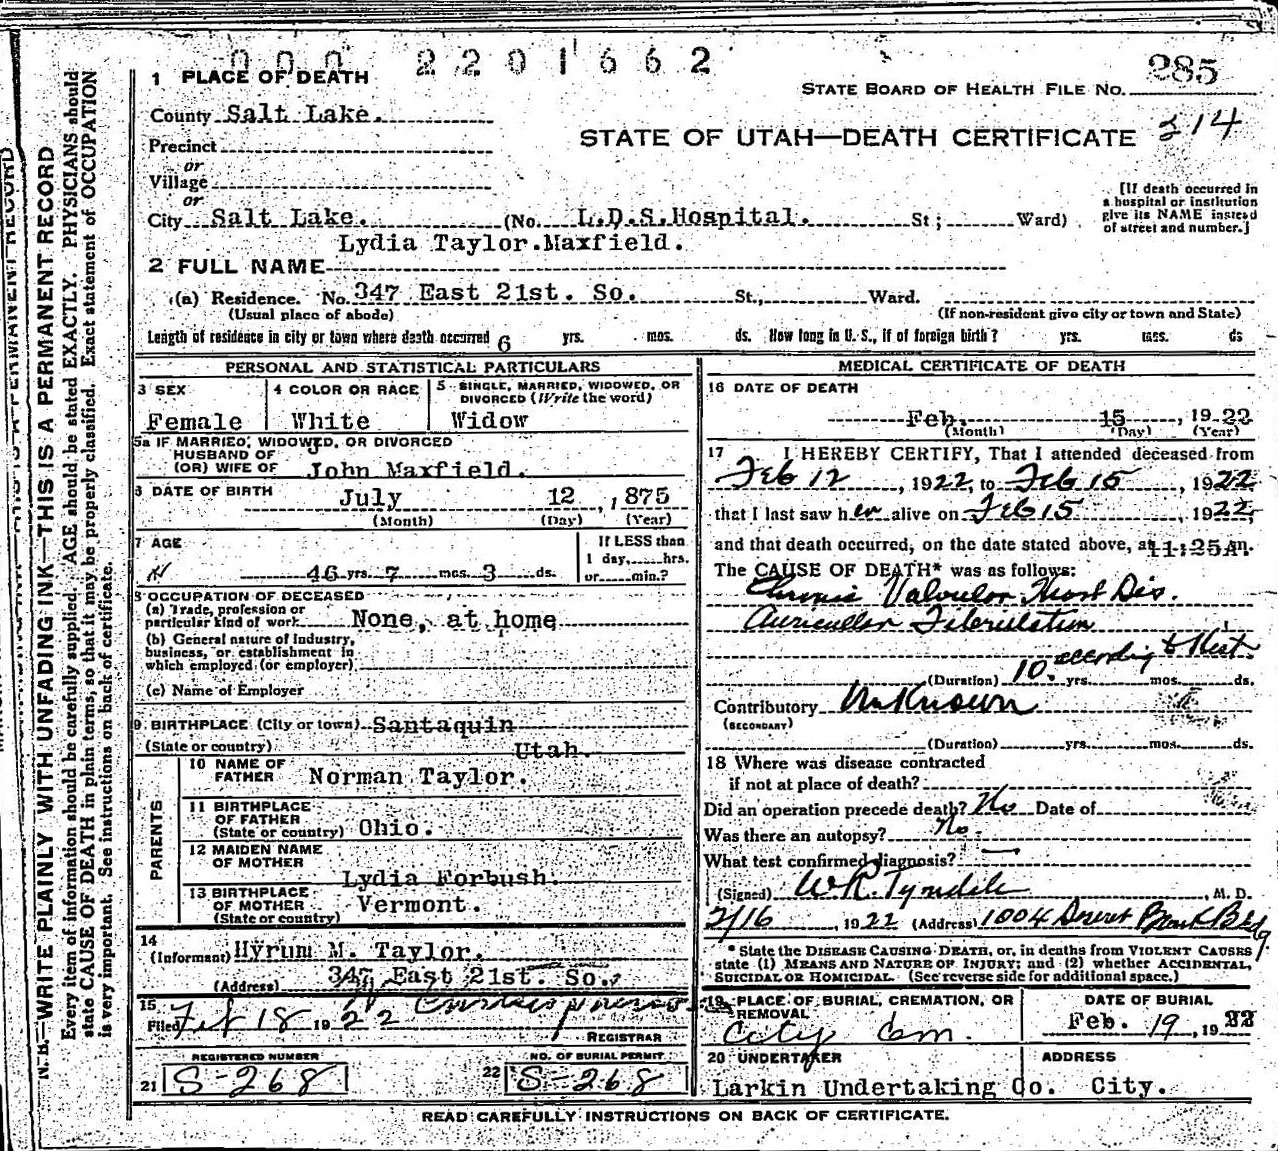 000 2201662
285
1 PLACE OF DEATH
STATE BOARD OF HEALTH FILE NO.
County Salt Lake.
314
STATE OF UTAH—DEATH CERTIFICATE
Precinct
or
Village
or
[If death occurred in
a hospital or institution
give its NAME instead
of street and number.]
City Salt Lake. (No. L.D.S.Hospital. St; Ward)
Lydia Taylor.Maxfield.
2 FULL NAME
(a) Residence. No. 347 East 21st. So. St., Ward.
(Usual place of abode) (If non-resident give city or town and State)
Length of residence in city or town where death occurred 6 yrs. mos. ds. How long in U. S., if of foreign birth? yrs. mos. ds
PERSONAL AND STATISTICAL PARTICULARS
3 SEX
Female
4 COLOR OR RACE
White
5 SINGLE, MARRIED, WIDOWED, OR
DIVORCED (Write the word)
Widow
5a IF MARRIED, WIDOWED, OR DIVORCED
HUSBAND OF
(OR) WIFE OF John Maxfield.
6 DATE OF BIRTH July 12, 1875
(Month) (Day) (Year)
7 AGE
46 yrs. 7 mos. 3 ds.
If LESS than
1 day, hrs.
or min.?
8 OCCUPATION OF DECEASED
(a) Trade, profession or
particular kind of work None, at home
(b) General nature of industry,
business, or establishment in
which employed (or employer)
(c) Name of Employer
9 BIRTHPLACE (City or town) Santaquin
(State or country) Utah.
PARENTS
10 NAME OF
FATHER Norman Taylor.
11 BIRTHPLACE
OF FATHER
(State or country) Ohio.
12 MAIDEN NAME
OF MOTHER
Lydia Forbush.
13 BIRTHPLACE
OF MOTHER Vermont.
(State or country)
14
(Informant) Hyrum M. Taylor.
(Address) 347 East 21st. So.
15
Filed Feb 18 1922
REGISTRAR
REGISTERED NUMBER
21 S-268
NO. OF BURIAL PERMIT
22 S-268
MEDICAL CERTIFICATE OF DEATH
16 DATE OF DEATH
Feb. 15, 1922
(Month) (Day) (Year)
17 I HEREBY CERTIFY, That I attended deceased from
Feb 12, 1922, to Feb 15, 1922
that I last saw her alive on Feb 15, 1922,
and that death occurred, on the date stated above, at 11:25A m.
The CAUSE OF DEATH* was as follows:
Chronic Valvular Heart Dis.
Auricular Fibrulation
according to Hist
(Duration) 10. yrs. mos. ds.
Contributory Unknown
(SECONDARY)
(Duration) yrs. mos. ds.
18 Where was disease contracted
if not at place of death?
Did an operation precede death? No Date of
Was there an autopsy? No.
What test confirmed diagnosis? —
(Signed) W.R. Tyndale, M. D.
2/16, 1922 (Address) 1004 Deseret Bank Bldg
* State the DISEASE CAUSING DEATH, or, in deaths from VIOLENT CAUSES
state (1) MEANS AND NATURE OF INJURY; and (2) whether ACCIDENTAL,
SUICIDAL OR HOMICIDAL. (See reverse side for additional space.)
19 PLACE OF BURIAL, CREMATION, OR
REMOVAL
City Cem.
DATE OF BURIAL
Feb. 19, 1922
20 UNDERTAKER
Larkin Undertaking Co.
ADDRESS
City.
READ CAREFULLY INSTRUCTIONS ON BACK OF CERTIFICATE.
N. B.—WRITE PLAINLY WITH UNFADING INK—THIS IS A PERMANENT RECORD
Every item of information should be carefully supplied. AGE should be stated EXACTLY. PHYSICIANS should
state CAUSE OF DEATH in plain terms, so that it may be properly classified. Exact statement of OCCUPATION
is very important. See instructions on back of certificate.